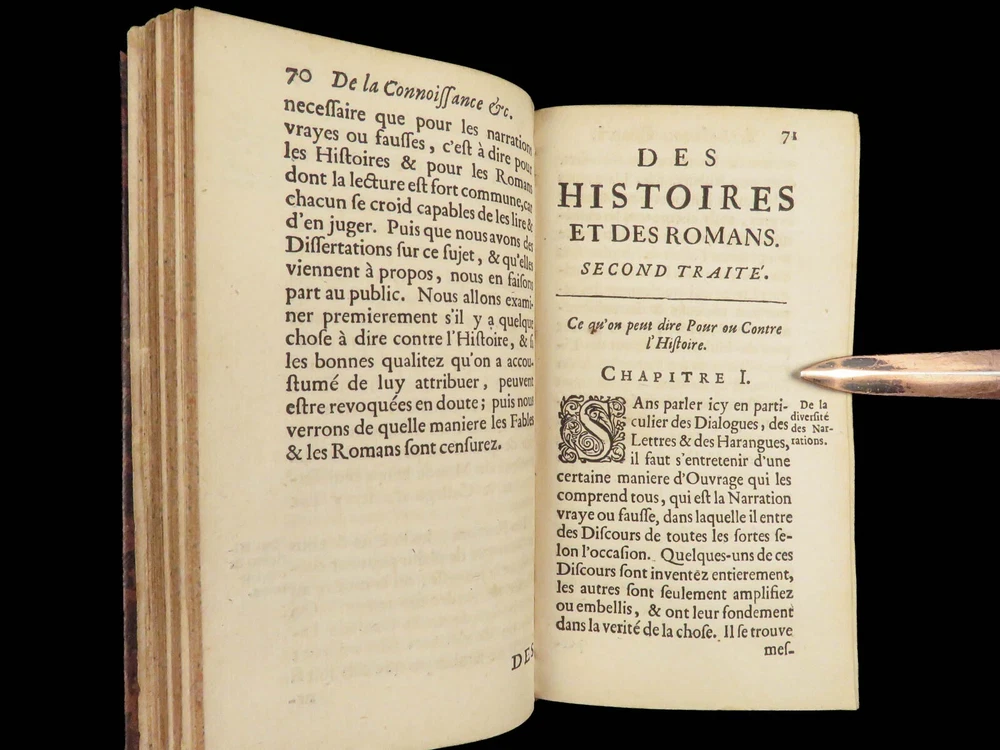 70 De la Connoiſſance &c.
neceſſaire que pour les narrations
vrayes ou fauſſes, c'eſt à dire pour
les Hiſtoires & pour les Romans
dont la lecture eſt fort commune, car
chacun ſe croid capables de les lire &
d'en juger. Puis que nous avons des
Diſſertations ſur ce ſujet, & qu'elles
viennent à propos, nous en faiſons
part au public. Nous allons exami-
ner premierement s'il y a quelque
choſe à dire contre l'Hiſtoire, & ſi
les bonnes qualitez qu'on a accou-
ſtumé de luy attribuer, peuvent
eſtre revoquées en doute; puis nous
verrons de quelle maniere les Fables
& les Romans ſont cenſurez.
DES
71
DES
HISTOIRES
ET DES ROMANS.
SECOND TRAITÉ.
Ce qu'on peut dire Pour ou Contre
l'Hiſtoire.
CHAPITRE I.
SAns parler icy en parti-
culier des Dialogues, des
Lettres & des Harangues,
il faut s'entretenir d'une
certaine maniere d'Ouvrage qui les
comprend tous, qui eſt la Narration
vraye ou fauſſe, dans laquelle il entre
des Diſcours de toutes les ſortes ſe-
lon l'occaſion. Quelques-uns de ces
Diſcours ſont inventez entierement,
les autres ſont ſeulement amplifiez
ou embellis, & ont leur fondement
dans la verité de la choſe. Il ſe trouve
meſ-
De la
diverſité
des Nar-
rations.